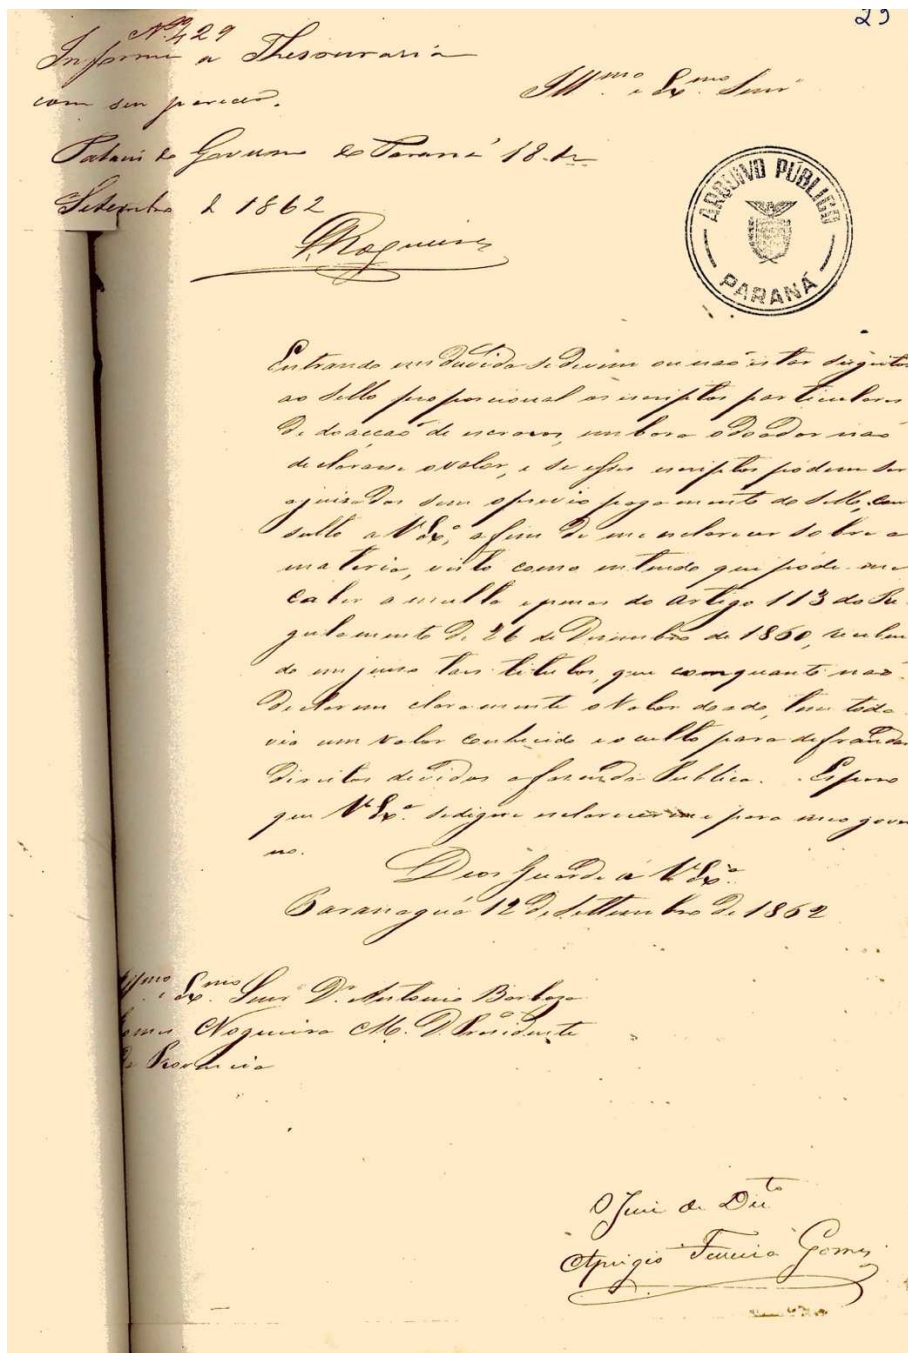 23
Nº 429
Informe a Thesouraria
com seu parecer.
Illmo. e Exmo. Senr
Palacio do Governo do Paraná 18 de
Setembro de 1862
Nogueira
ARQUIVO PÚBLICO
PARANÁ
Entrando em duvida se devem ou não estar sugeitos
ao sello proporcional os escriptos particulares
de doacção de escravos, embora o doador não
declarasse o valor, e se esses escriptos pódem ser
ajuisados sem o previo pagamento do sello, con
sulto a V. Exª, afim de me esclarecer sobre a
materia, visto como entendo que póde me
caber a multa e penas do artigo 113 do Re-
gulamento de 26 de Dezembro de 1860, receben
do em juiso taes titulos, que comquanto não
declarem claramente o valor doado, tem toda
via um valor conhecido e occulto para defraudar
direitos devidos a fazenda Publica. Espero
que V. Exª. se digne esclarecer-me para meo gover
no.
Deos Guarde a V. Exª.
Paranaguá 12 de Settembro de 1862
Illmo. e Exmo. Senr Dr. Antonio Barboza
Gomes Nogueira M. D. Presidente
da Provincia
O Juiz de Dirto
Aprigio Ferreira Gomes